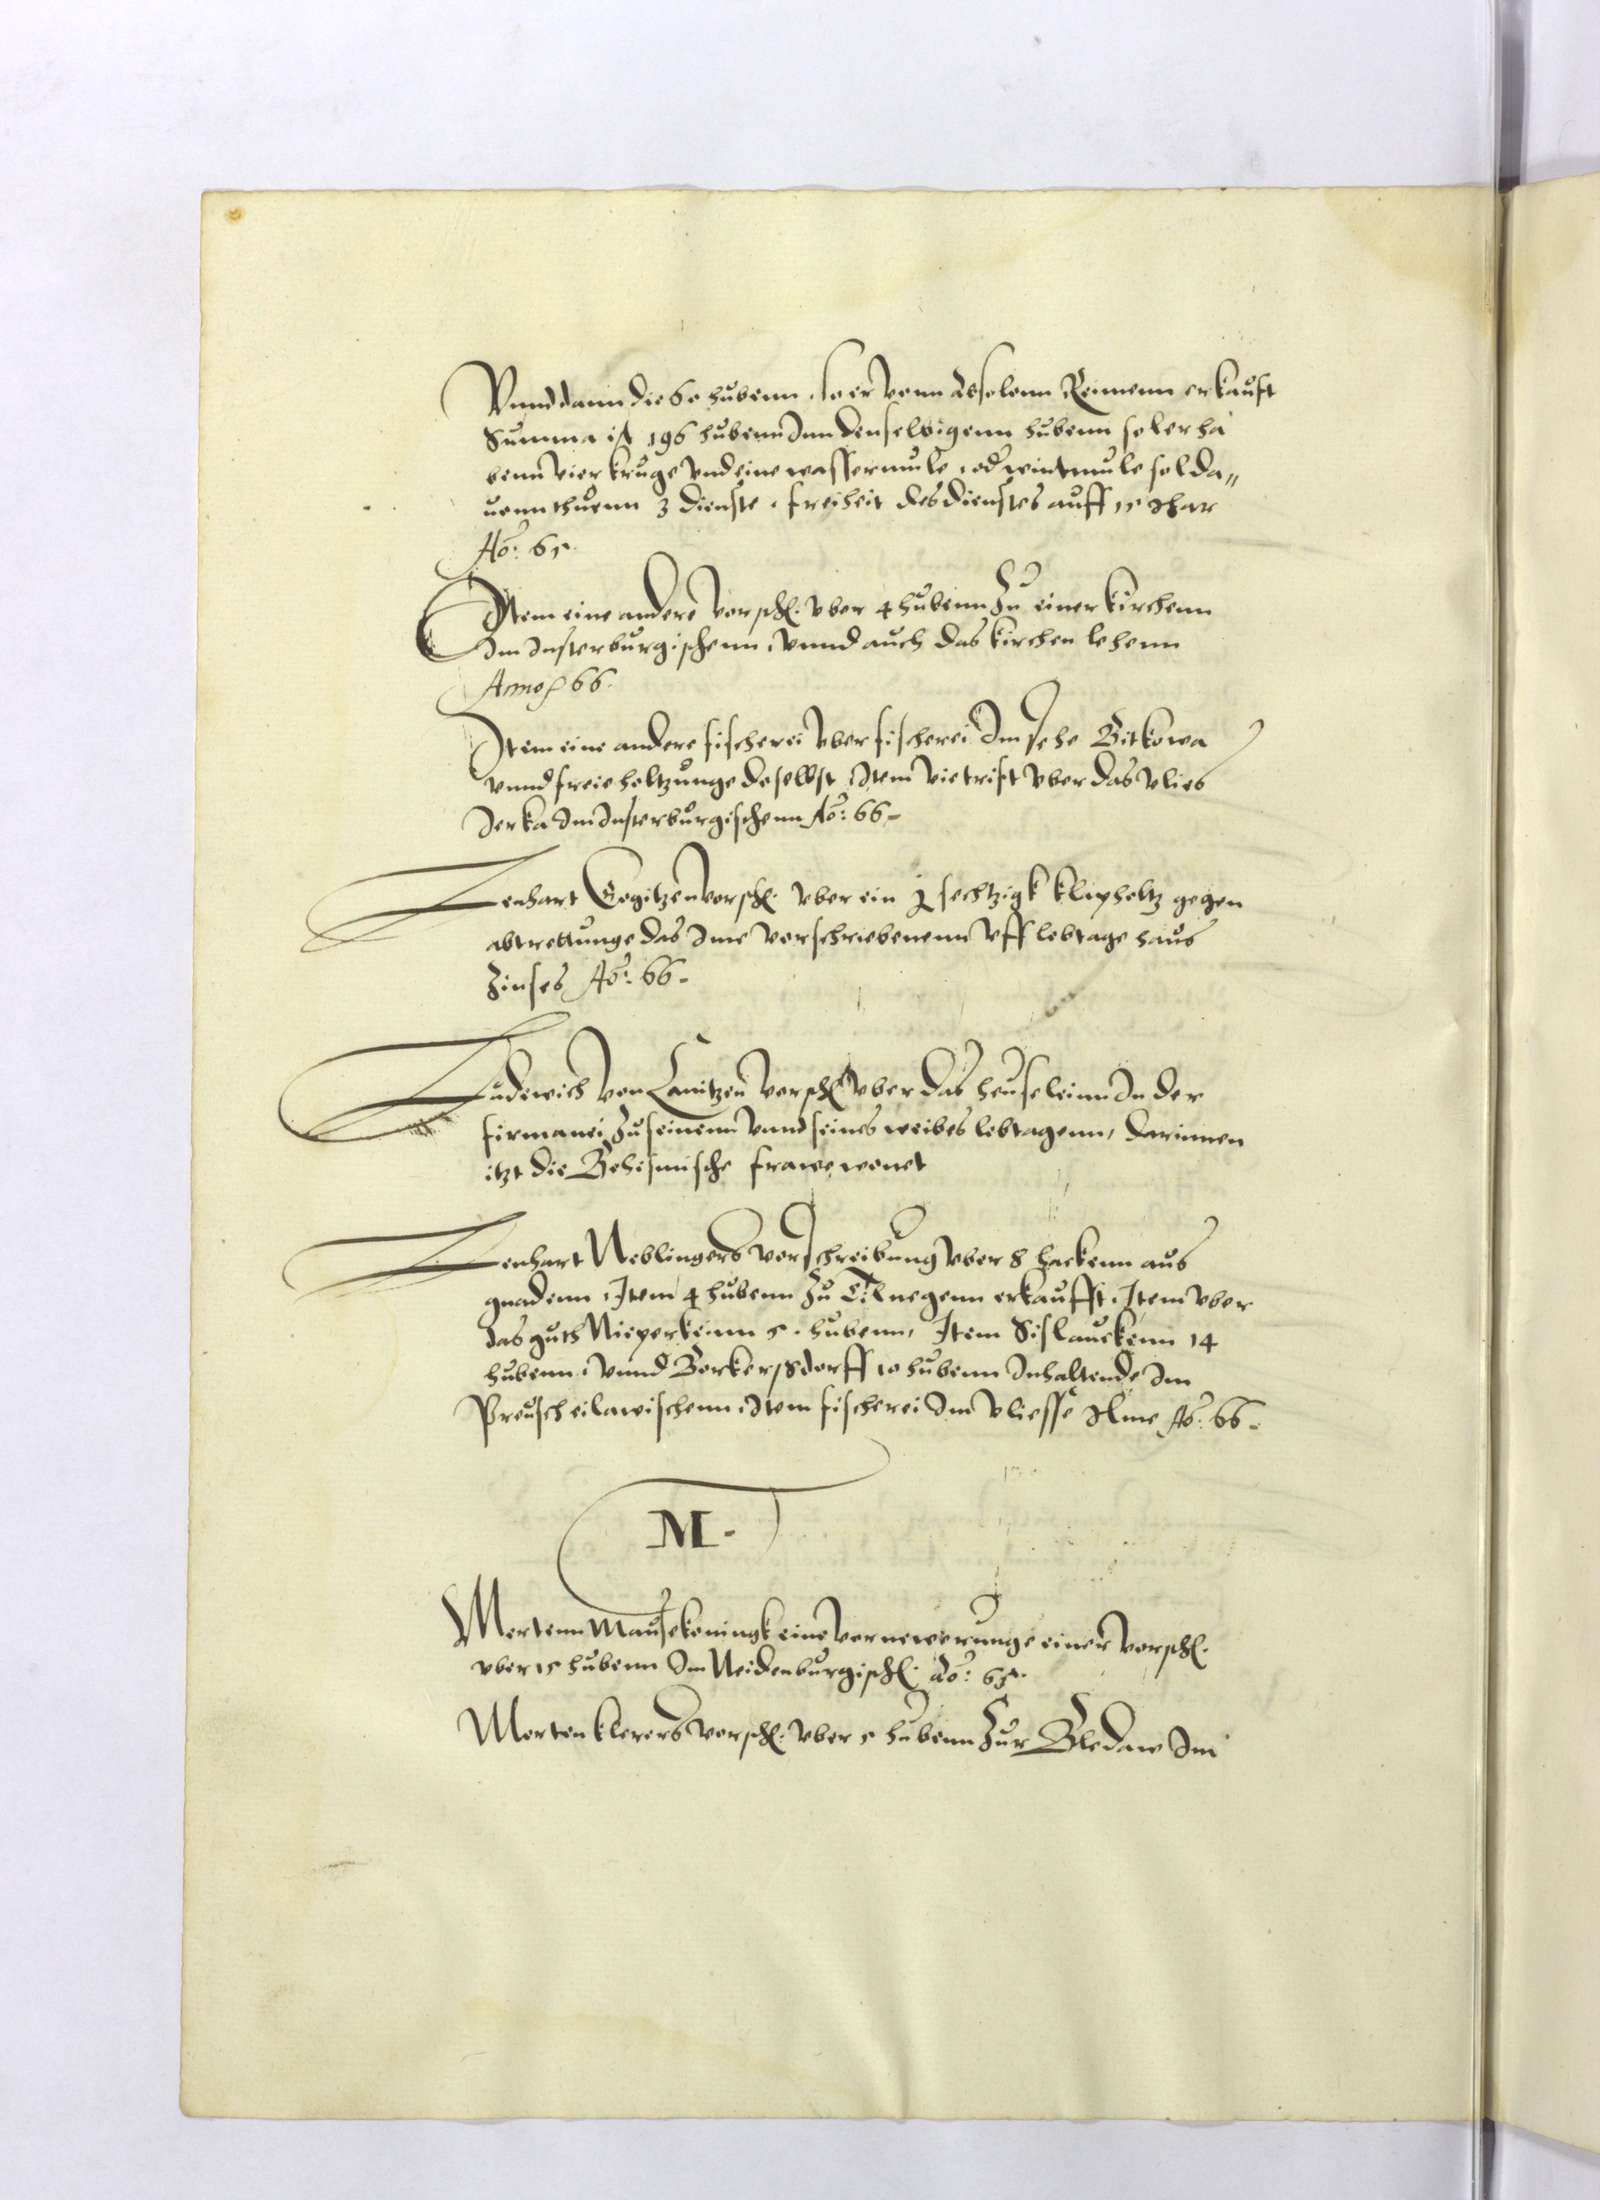 Vnnd dann die 60 hubenn, so er vonn Absolonn Reimenn erkauft
Summa ist 196 hubenn Inn denselbigenn hubenn sol er ha
benn vier kruge vnd eine wassermule, od wintmule sol da„
uonn thuenn 3 dienste, freiheit des dienstes auff 15 Jhar
Ao: 65.
Item eine andere vorsch. vber 4 hubenn Zu einer kirchenn
Im Insterburgischenn, vnnd auch das kirchen lehenn
Anno 66.
Item eine andere fischerei vber fischerei Im sehe Bitkowa
vnnd freie holtzunge doselbst, Item vietrift vber das vlies
Jerka Im Insterburgischenn Ao: 66.
Lenhart vorsch. vber ein sechtzigk klapholtz gegen
abtrettunge das Ime vorschriebenenn vff lebtage haus
Zinses Ao: 66.
Ludewich von Canitzen vorsch. vber das heuseleinn In der
firmanei Zu seinenn vnnd seines weibes lebtagenn, darinnen
itzt die Behemische frawe wonet
Lenhart Neblingers vorschreibung vber 8 hackenn aus
gnadenn, Item 4 hubenn Zu erkaufft, Item vber
das guth 5. hubenn, Item Sislauckenn 14
hubenn, vnnd Borkersdorff 10 hubenn Inhaltende Im
Preusch eilawischenn, Item fischerei Im vliesse Ao: 66.
M.
Mertenn Mausekoningk eine vornewerunge einer vorsch.
vber 15 hubenn Im Neidenburgisch. Ao: 65.
Merten klerers vorsch. vber 5 hubenn Zur Bledaw Im